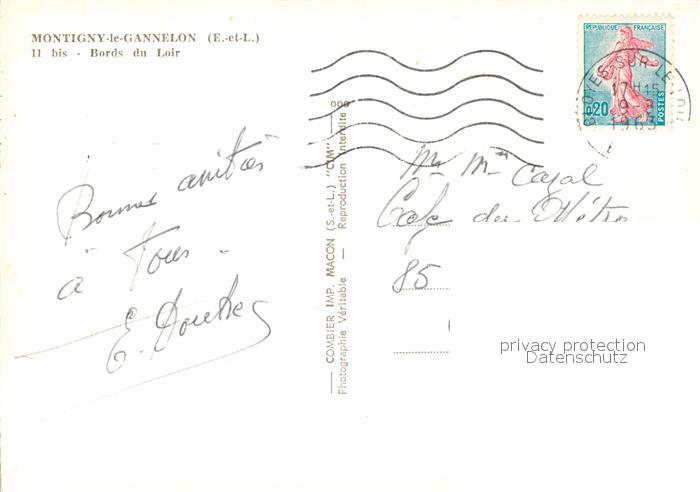 MONTIGNY-le-GANNELON (E.-et-L.)
11 bis - Bords du Loir
Bonnes amitiés
à Tous -
E.
COMBIER IMP. MACON (S.-et-L.) "CIM"
Photographie Véritable — Reproduction Interdite
REPUBLIQUE FRANÇAISE
0,20
POSTES
CLOYES-SUR-LE-LOIR
17H15
9-
1963
Mr Mme Cazal
Café du Métro
85
privacy protection
Datenschutz